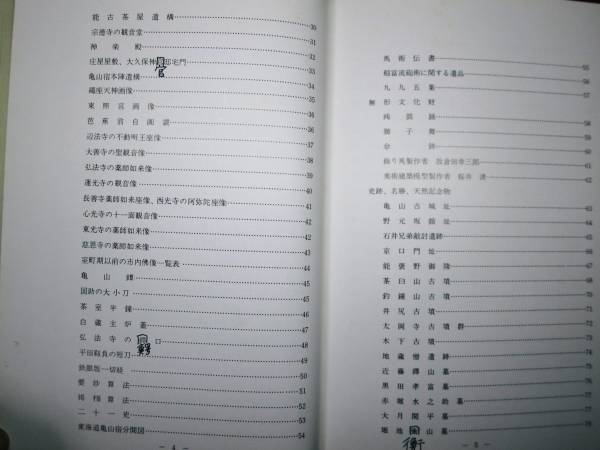 能古茶屋遺構 30
宗徳寺の観音堂 31
神楽殿 32
庄屋屋敷、大久保神官邸宅門 33
亀山宿本陣遺構 34
縄座天神画像 35
東照宮画像 36
芭蕉翁自画讃 37
辺法寺の不動明王座像 38
大善寺の聖観音像 39
弘法寺の薬師如来像 39
蓮光寺の観音像 40
長善寺薬師如来座像、西光寺の阿弥陀座像 41
心光寺の十一面観音像 42
東光寺の薬師如来像 43
慈恩寺の薬師如来像 43
室町期以前の市内佛像一覧表 44
亀山鐔 44
国助の大小刀 45
茶室半鐘 46
白蔵主炉蓋 47
弘法寺の鰐口 48
平田靱負の短刀 49
鉄眼版一切経 50
要妙算法 51
掲楣算法 52
二十一史 53
東海道亀山宿分間図 54
— 4 —
馬術伝書 55
稲富流砲術に関する遺品 55
九九五集 56
無形文化財
雨調踊 58
獅子舞 59
傘鉾 60
飾り馬製作者 放倉田幸三郎 61
美術建築模型製作者 桜井清 62
史跡、名勝、天然記念物
亀山古城址 63
野元坂館址 64
石井兄弟敵討遺跡 65
京口門址 66
能褒野御陵 67
茶臼山古墳 68
釣鐘山古墳 70
井尻古墳 71
太岡寺古墳群 72
木下古墳 73
地蔵僧遺跡 74
近藤鐸山墓 75
黒田孝富墓 76
赤堀水之助墓 77
大月関平墓 78
堀池衡山墓 79
— 5 —